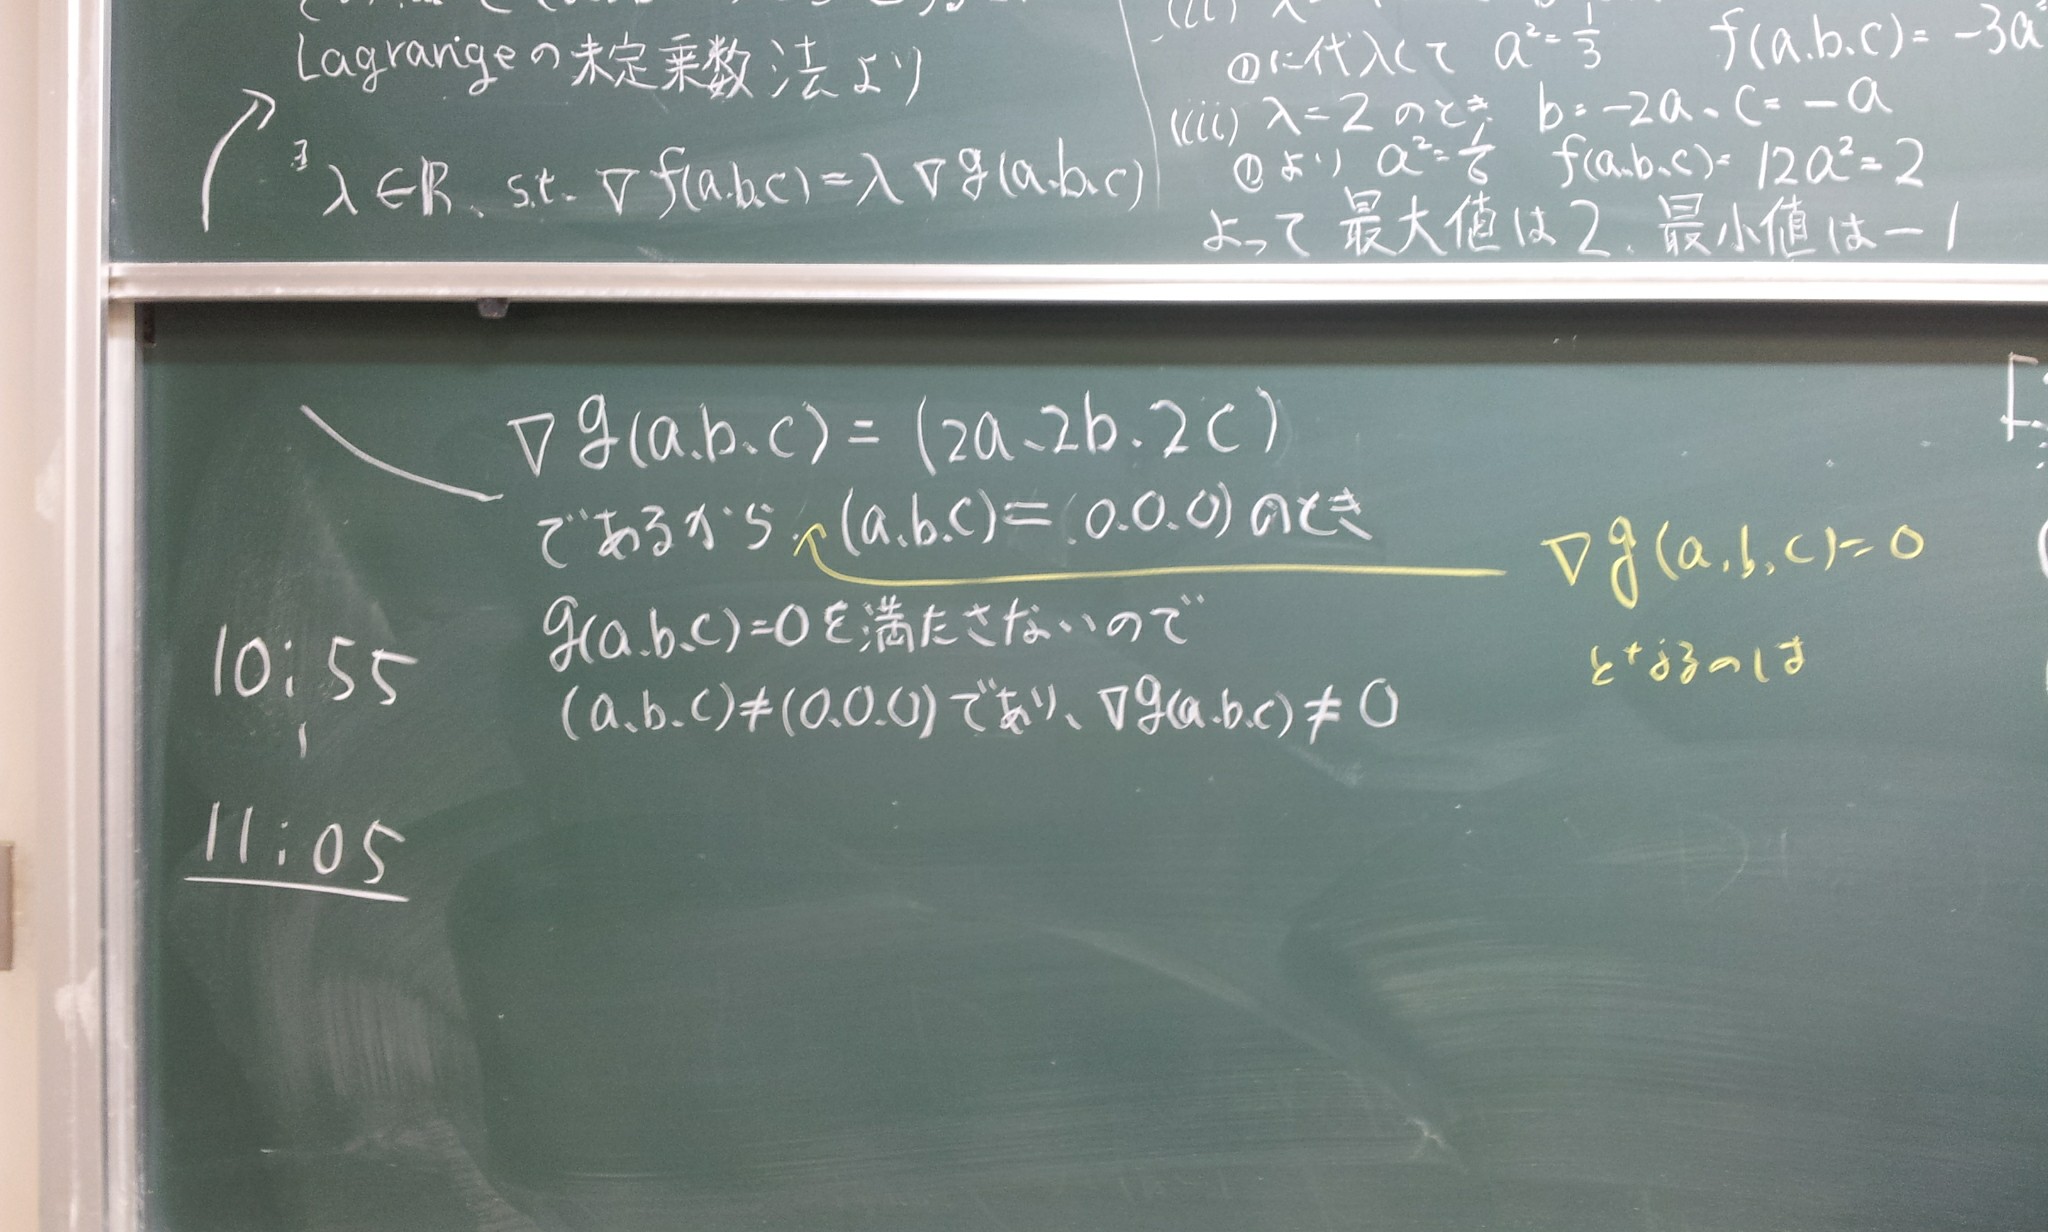 Lagrangeの未定乗数法より
∃λ∈R、s.t. ∇f(a.b.c)=λ∇g(a.b.c)
①に代入して a²=1/3 f(a.b.c)=-3a²
(iii) λ=2のとき b=-2a、c=-a
①より a²=1/6 f(a.b.c)=12a²=2
よって最大値は2、最小値は-1
∇g(a.b.c)=(2a、2b、2c)
であるから、(a.b.c)=(0.0.0)のとき
∇g(a.b.c)=0
となるのは
g(a.b.c)=0を満たさないので
(a.b.c)≠(0.0.0)であり、∇g(a.b.c)≠0
10:55
11:05